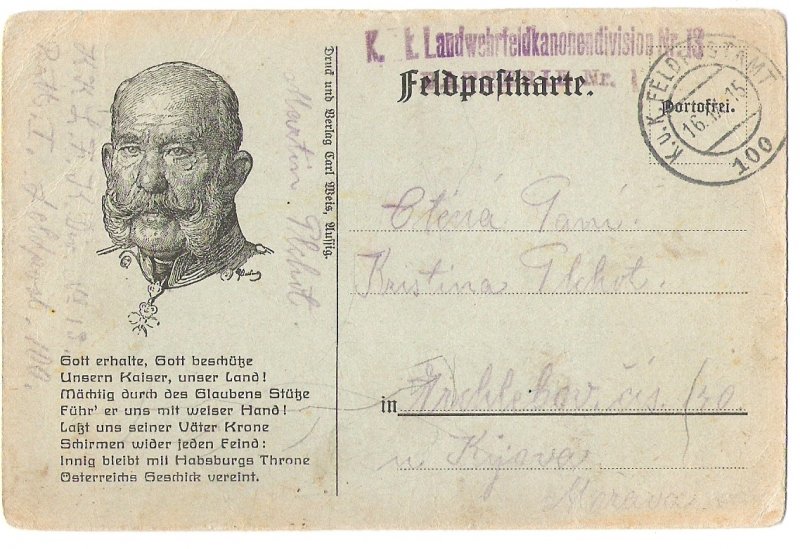 K. k. Landwehrfeldkanonendivision Nr. 13
Nr. 1
Feldpostkarte.
Portofrei.
K.u.K. FELDPOSTAMT
100
Druck und Verlag Carl Weis, Aussig.
Martin Plchot.
Feldpost. 100.
Ctěná Paní.
Kristina Plchot.
in
u Kyjova
Morava
Gott erhalte, Gott beschütze
Unsern Kaiser, unser Land!
Mächtig durch des Glaubens Stütze
Führ' er uns mit weiser Hand!
Laßt uns seiner Väter Krone
Schirmen wider jeden Feind:
Innig bleibt mit Habsburgs Throne
Österreichs Geschick vereint.